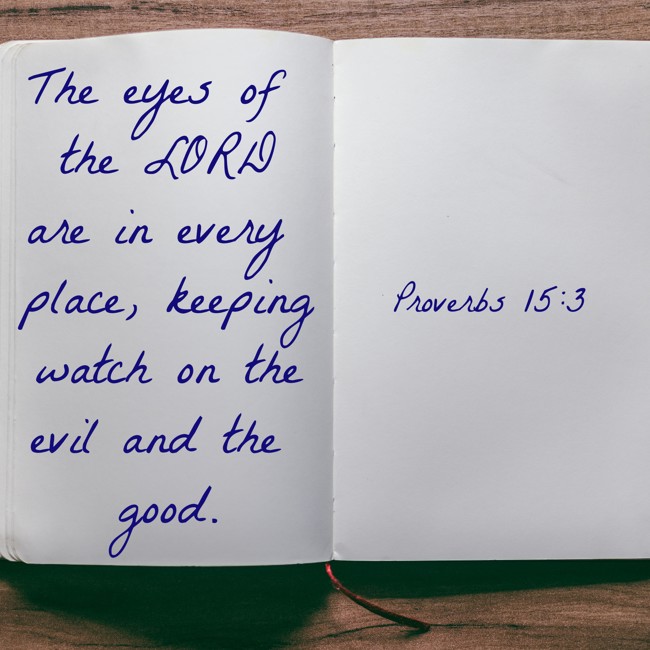 The eyes of
the LORD
are in every
place, keeping
watch on the
evil and the
good.
Proverbs 15:3